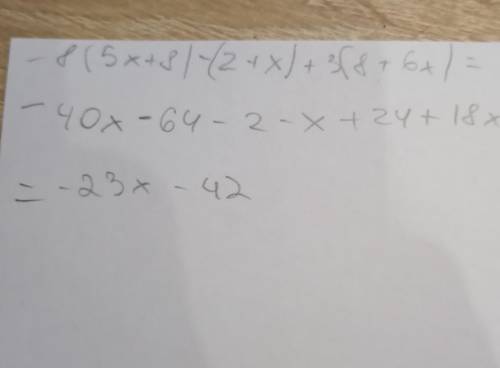 -8(5x+8)-(2+x)+3(8+6x)=
-40x-64-2-x+24+18x
=-23x-42